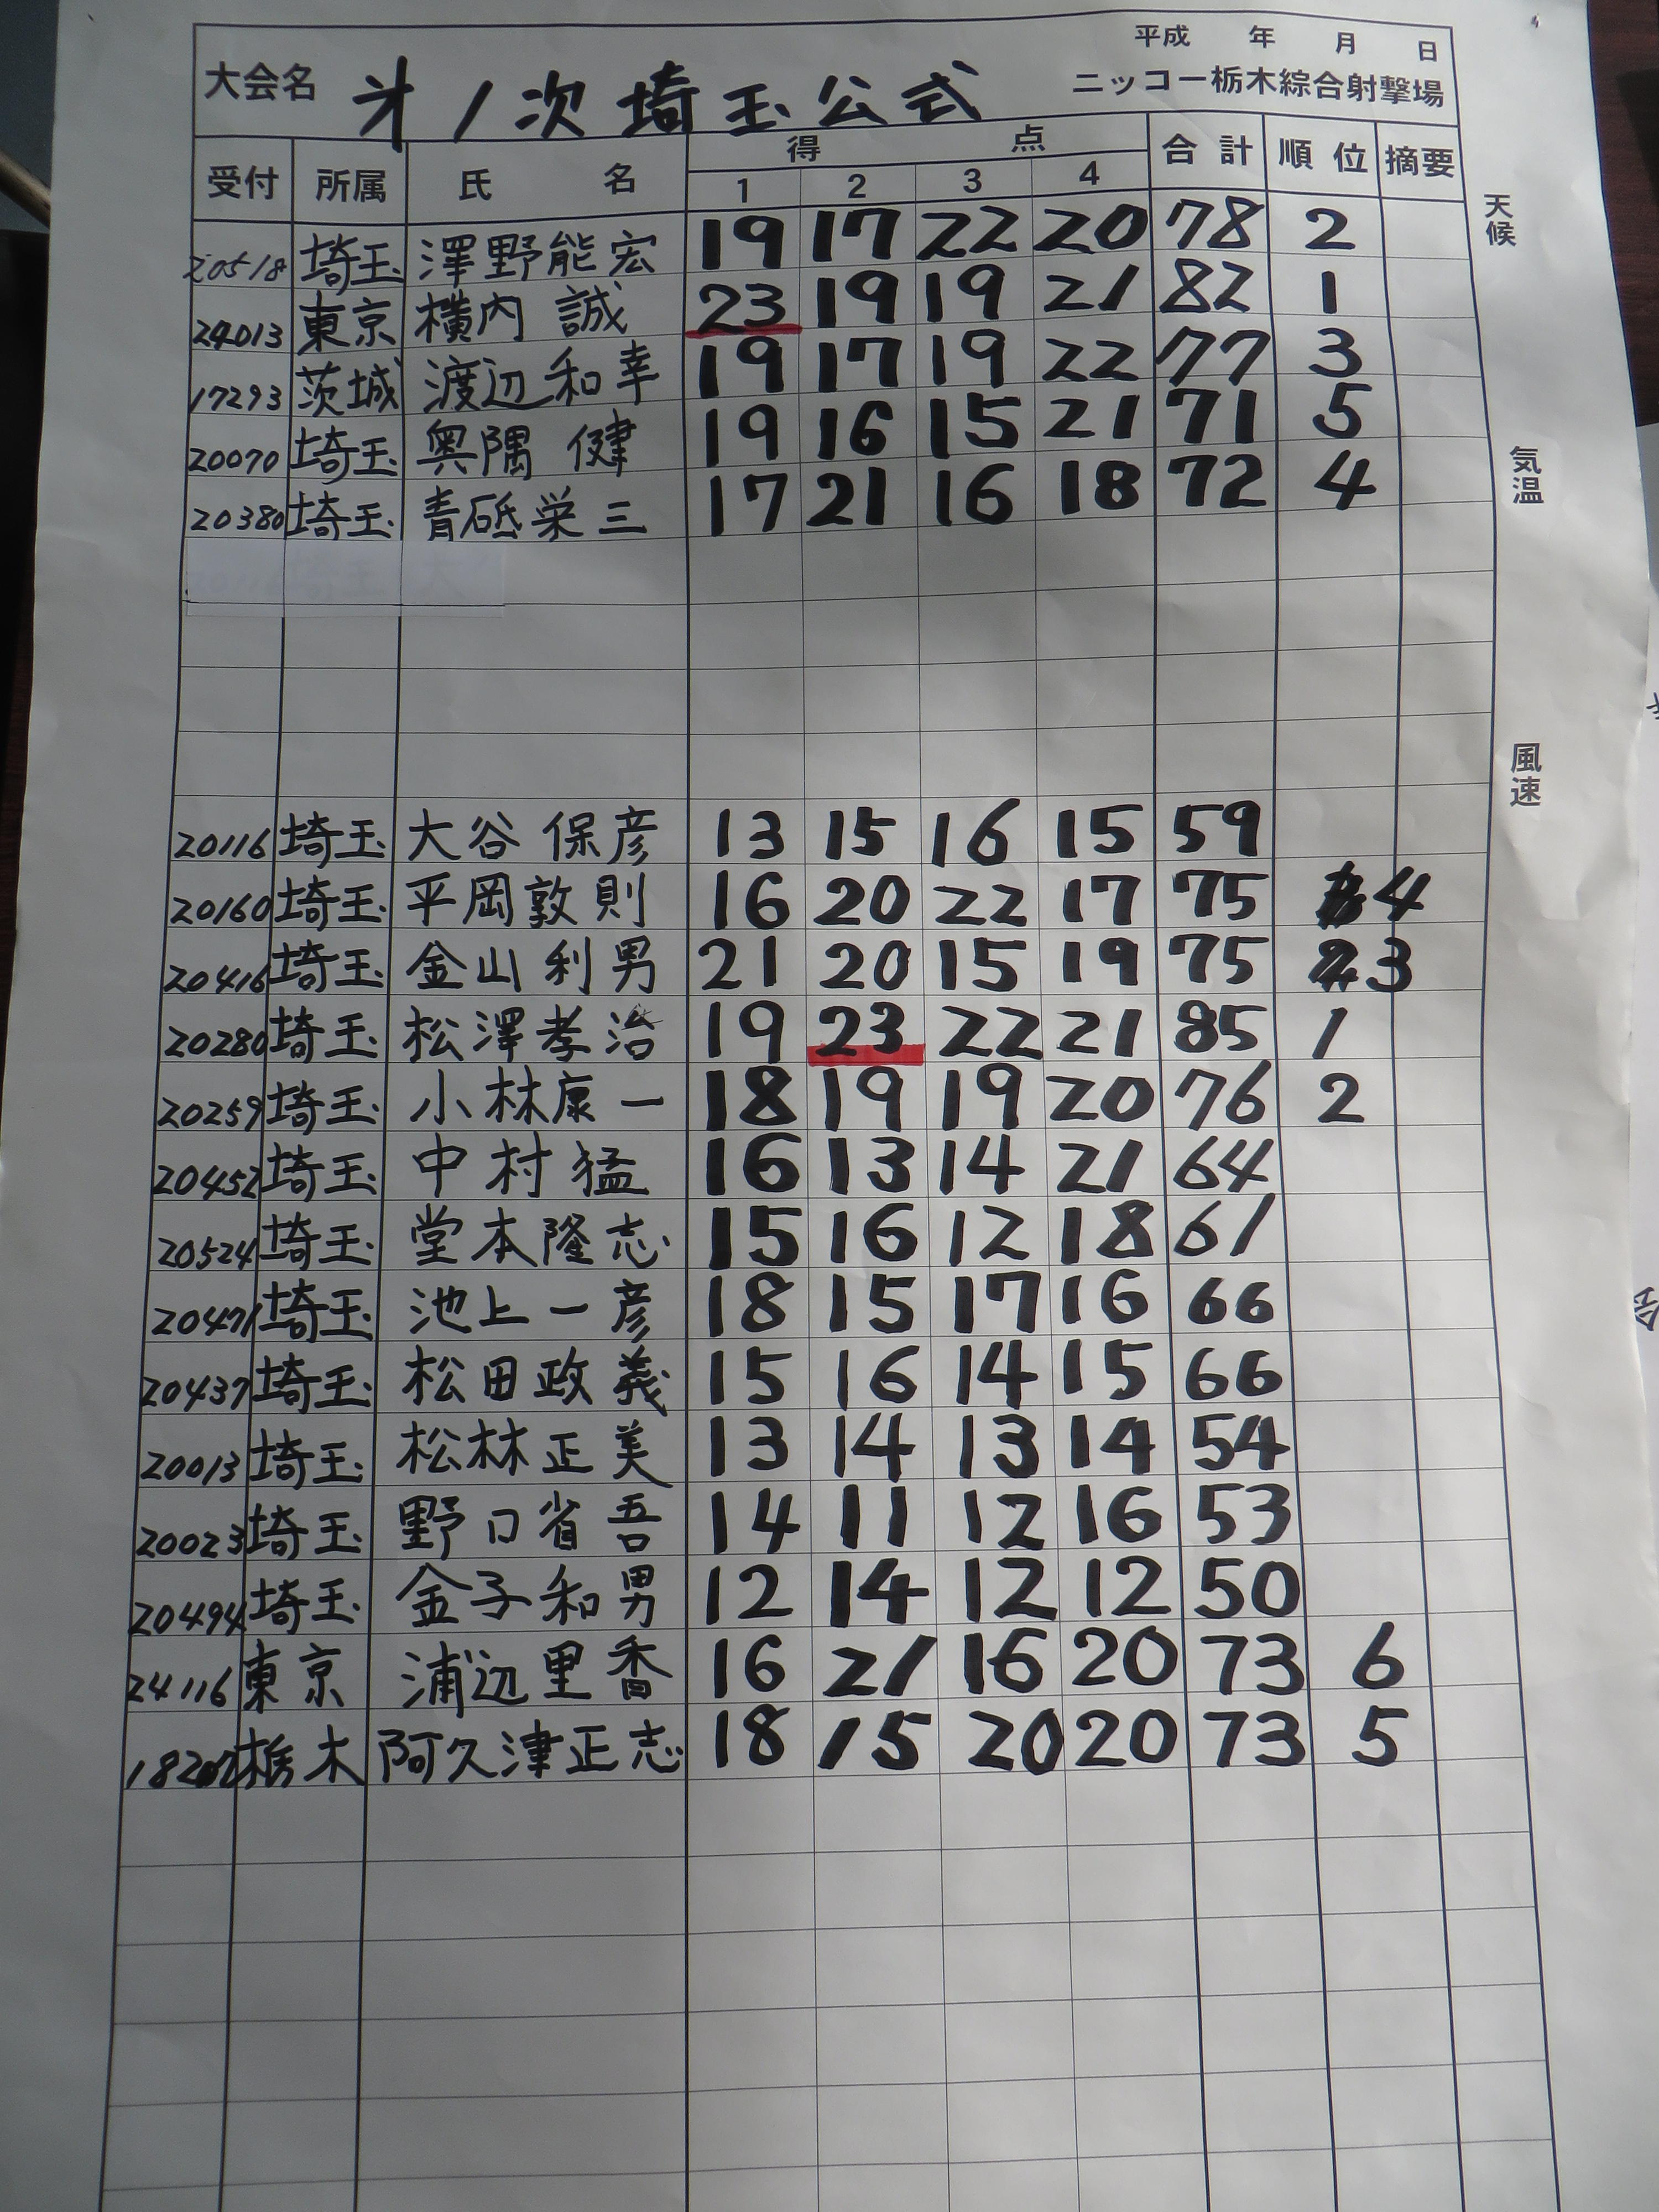 平成 年 月 日
大会名 才1次埼玉公式 ニッコー栃木綜合射撃場
受付 所属 氏名 得点 合計 順位 摘要
1 2 3 4
20518 埼玉 澤野能宏 19 17 22 20 78 2
24013 東京 横内 誠 23 19 19 21 82 1
17293 茨城 渡辺和幸 19 17 19 22 77 3
20070 埼玉 奥隅 健 19 16 15 21 71 5
20380 埼玉 青砥栄三 17 21 16 18 72 4
20116 埼玉 大谷保彦 13 15 16 15 59
20160 埼玉 平岡敦則 16 20 22 17 75 4
20416 埼玉 金山利男 21 20 15 19 75 3
20280 埼玉 松澤孝治 19 23 22 21 85 1
20259 埼玉 小林康一 18 19 19 20 76 2
20452 埼玉 中村猛 16 13 14 21 64
20524 埼玉 堂本隆志 15 16 12 18 61
20471 埼玉 池上一彦 18 15 17 16 66
20437 埼玉 松田政義 15 16 14 15 66
20013 埼玉 松林正美 13 14 13 14 54
20023 埼玉 野口省吾 14 11 12 16 53
20494 埼玉 金子和男 12 14 12 12 50
24116 東京 浦辺里香 16 21 16 20 73 6
栃木 阿久津正志 18 15 20 20 73 5
天候
気温
風速